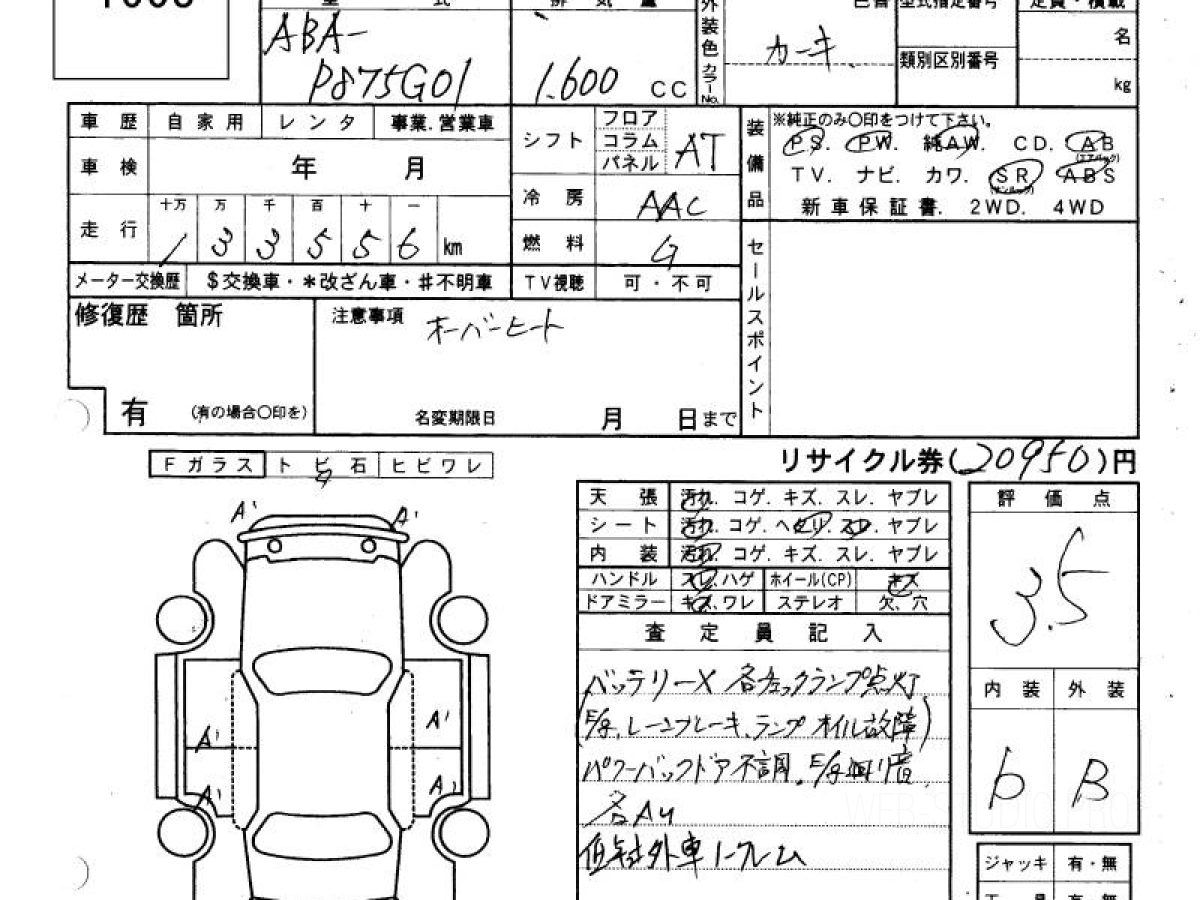 ABA-
P875G01
1.600 cc
外装色 カラーNo.
カーキ
型式指定番号
類別区別番号
定員・積載
名
kg
車歴 自家用 レンタ 事業.営業車
車検 年 月
走行 十万 万 千 百 十 一
1 3 3 5 5 6 km
メーター交換歴 $交換車・*改ざん車・#不明車
シフト フロア コラム パネル AT
冷房 AAC
燃料 G
TV視聴 可・不可
装備品 ※純正のみ〇印をつけて下さい。
PS. PW. 純AW. CD. AB
(エアバック)
TV. ナビ. カワ. SR. ABS
(サンルーフ)
新車保証書. 2WD. 4WD
セールスポイント
修復歴 箇所
有 (有の場合〇印を)
注意事項 オーバーヒート
名変期限日 月 日まで
リサイクル券(20950)円
Fガラス トビ石 ヒビワレ
A' A'
A' A'
A' A'
天張 汚れ. コゲ. キズ. スレ. ヤブレ
シート 汚れ. コゲ. ヘタリ. スレ. ヤブレ
内装 汚れ. コゲ. キズ. スレ. ヤブレ
ハンドル スレ.ハゲ ホイール(CP) キズ
ドアミラー キズ.ワレ ステレオ 欠、穴
査定員記入
バッテリーX 各チェックランプ点灯
(E/g、レーンブレーキ、ランプ オイル故障)
パワーバックドア不調. E/g 異音
各AU
評価点
3.5
内装 外装
D B
ジャッキ 有・無